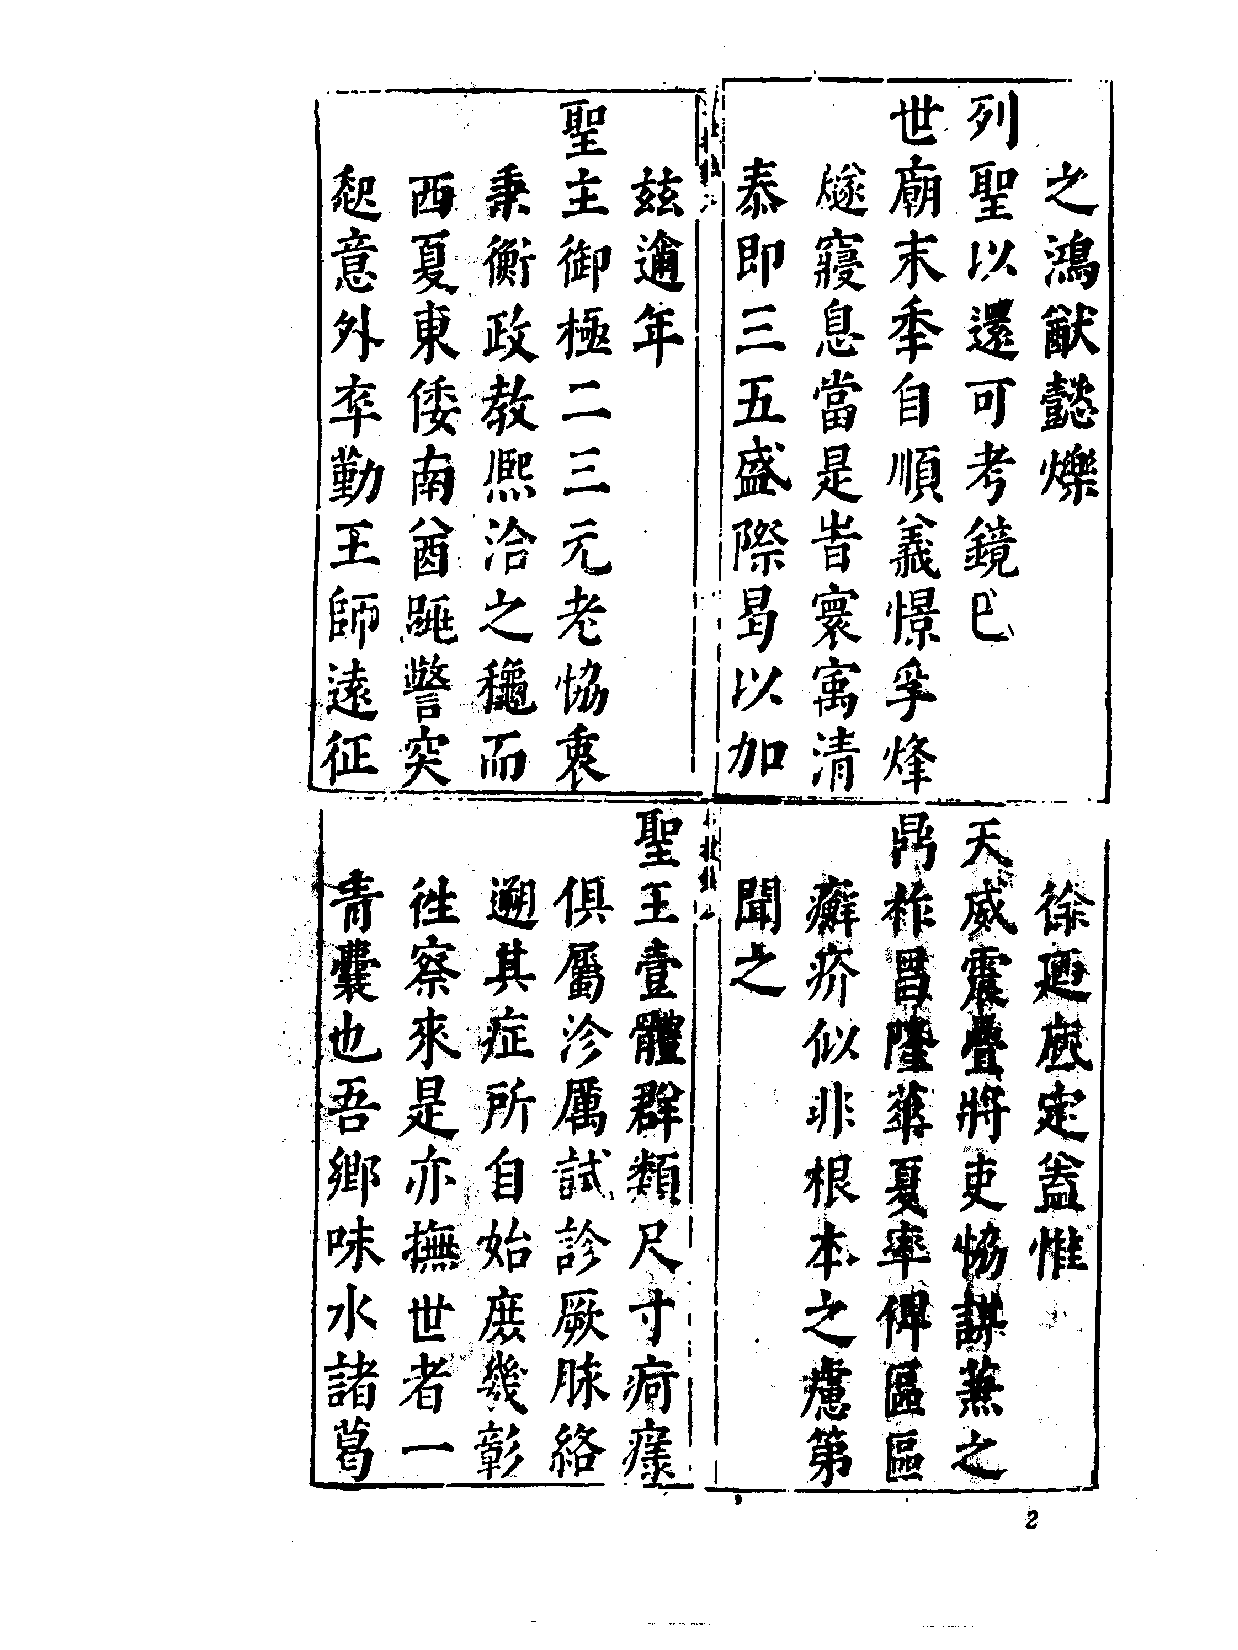 之鴻猷懿爍
列聖以還可考鏡已
世廟末季自順義憬孚烽
燧寢息當是旹寰寓清
泰即三五盛際曷以加
茲邇年
聖主御極二三元老恊衷
秉衡政教熈洽之穐而
西夏東倭南酋踵警突
起意外卒勤王師遠征
徐廼底定葢惟
天威震疊將吏恊謀蕪之
鼎祚昌隆華夏率俾區區
癬疥似非根本之慮第
聞之
聖王壹體群類尺寸疴瘝
俱屬沴厲試診厥脉絡
遡其症所自始庻幾彰
徃察來是亦撫世者一
青囊也吾鄉味水諸葛
2